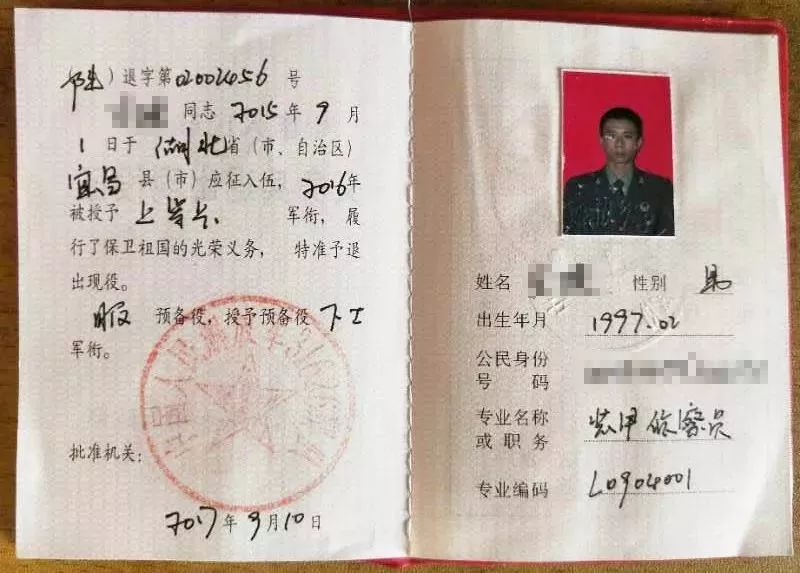 ）退字第02002456号
同志 2015年 9 月
1 日于 湖北省（市、自治区）
宜昌 县（市）应征入伍， 2016年
被授予 上等兵 军衔，履
行了保卫祖国的光荣义务， 特准予退
出现役。
服 预备役，授予预备役 下士
军衔。
批准机关：
2017年 9月10日
姓名 性别 男
出生年月 1997.02
公民身份
号 码
专业名称 装甲侦察员
或 职 务
专业编码 L0904001